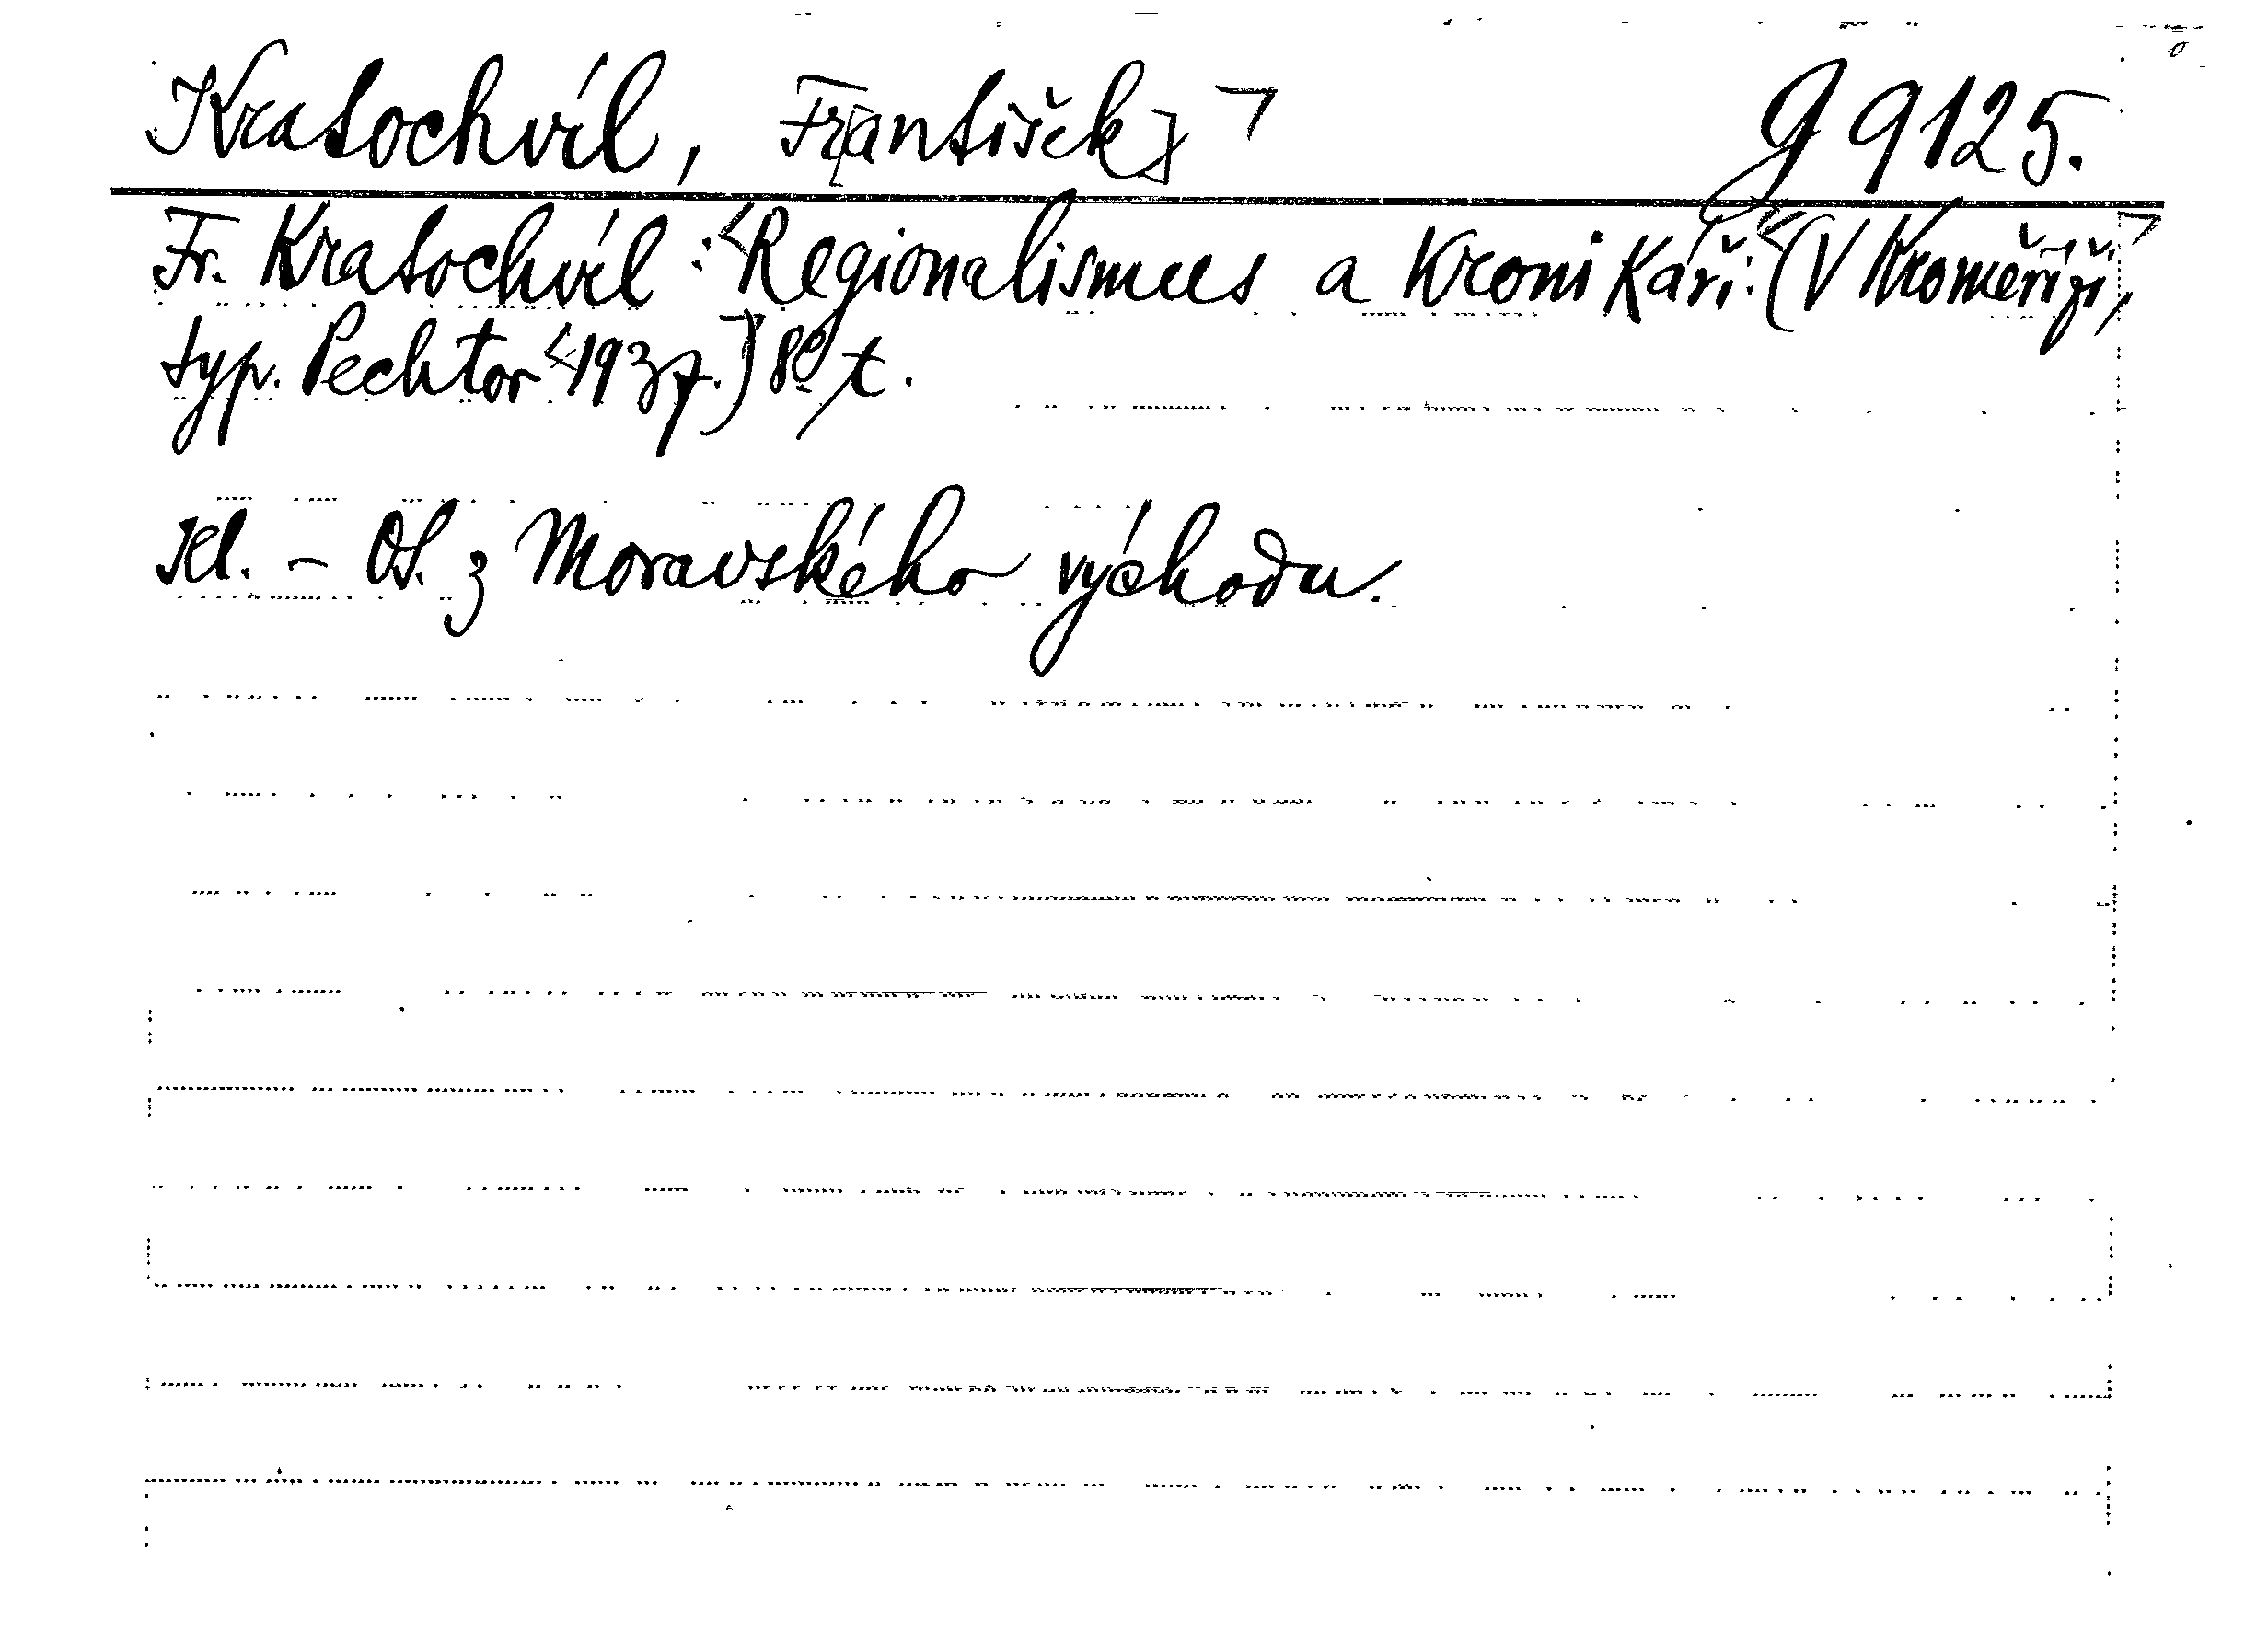 Kratochvíl, Fr[antišek] G 9125.
Fr. Kratochvíl: Regionalismus a kronikáři. (V Kroměříži,
typ. Pechtor 1937.) 8° t.
Kl. - Ot. z Moravského východu.